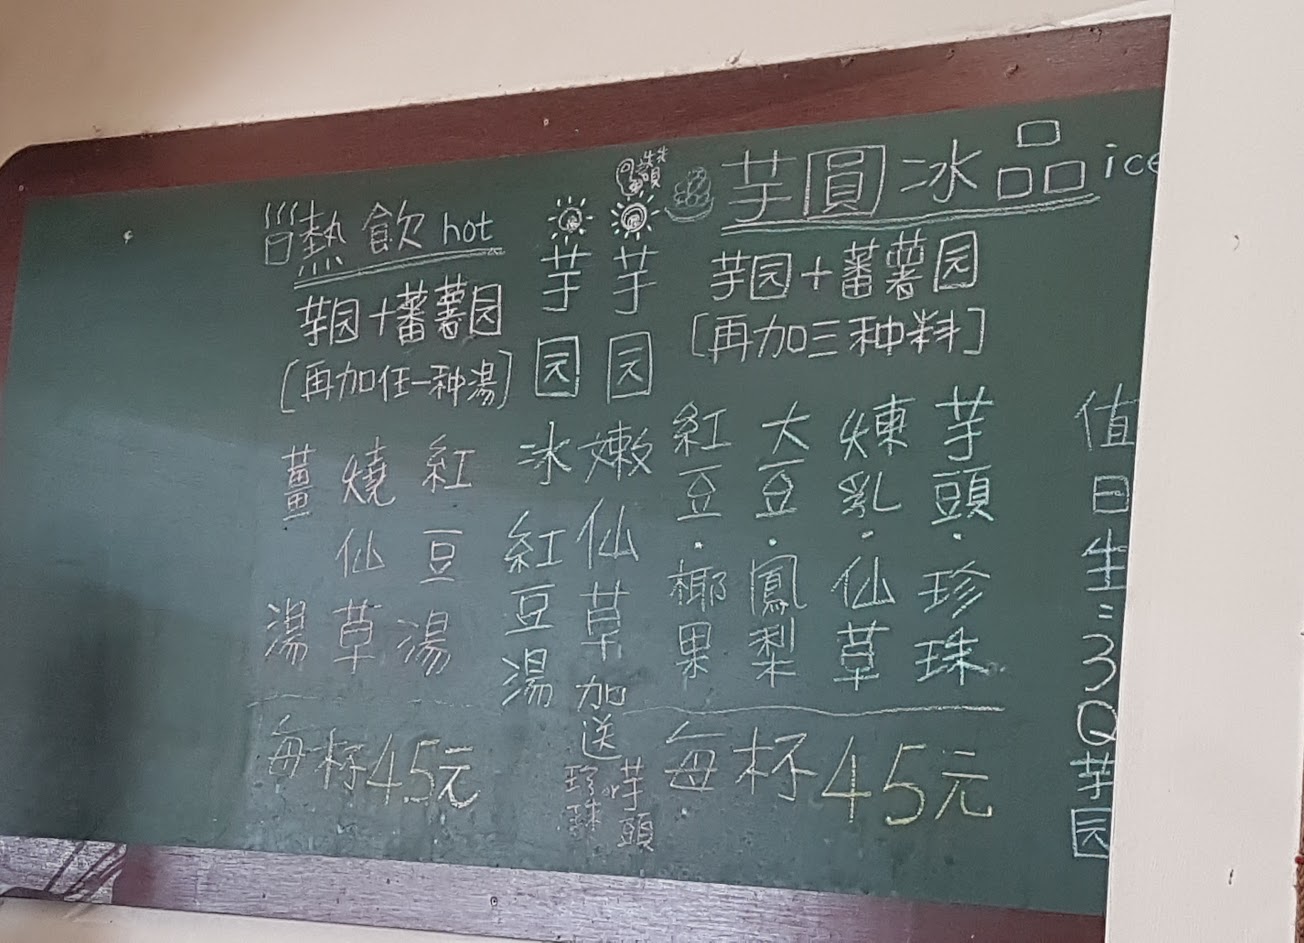 芋圓冰品ice
芋园+蕃薯园
[再加三种料]
芋頭·珍珠
煉乳·仙草
大豆·鳳梨
紅豆·椰果
每杯45元
讚
芋园嫩仙草加送
芋頭
珍珠
芋园冰紅豆湯
熱飲hot
芋园+蕃薯园
[再加任一种湯]
紅豆湯
燒仙草
薑湯
每杯45元
值日生:3Q芋园